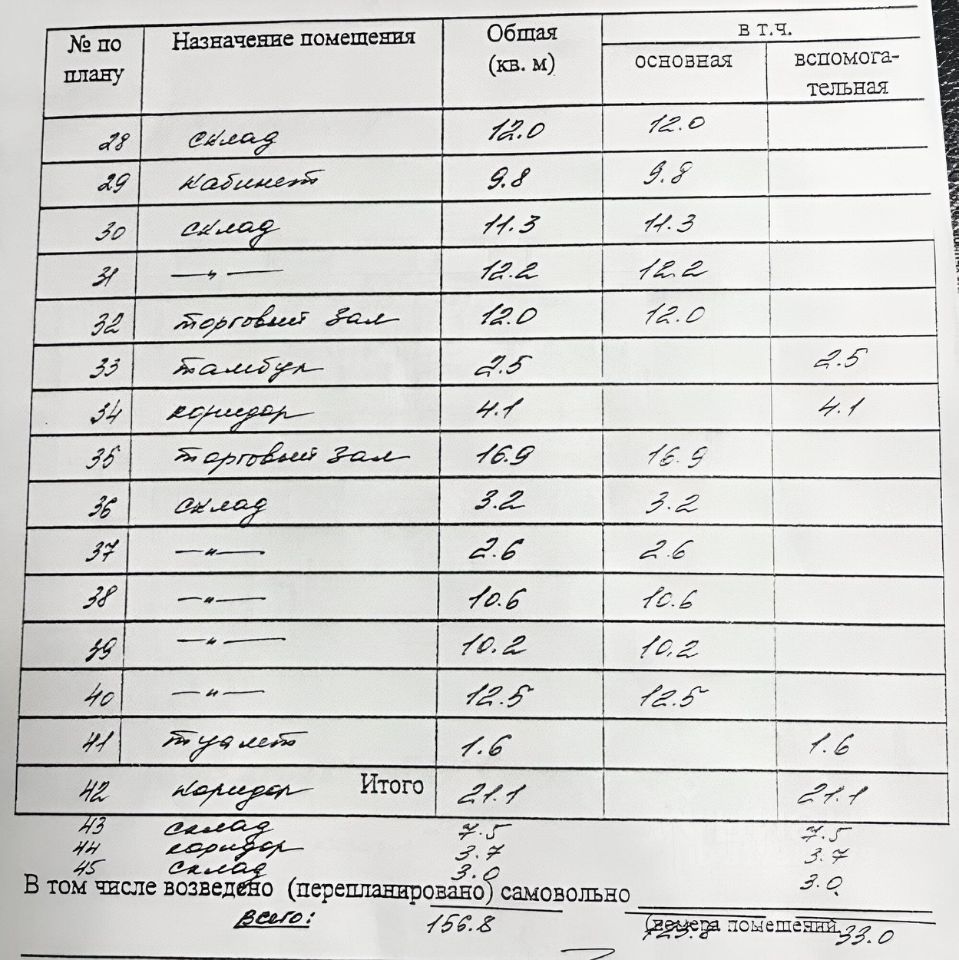 № по плану Назначение помещения Общая (кв. м) в т.ч. основная вспомога-тельная
28 склад 12.0 12.0
29 кабинет 9.8 9.8
30 склад 11.3 11.3
31 —"— 12.2 12.2
32 торговый зал 12.0 12.0
33 тамбур 2.5 2.5
34 коридор 4.1 4.1
35 торговый зал 16.9 16.9
36 склад 3.2 3.2
37 —"— 2.6 2.6
38 —"— 10.6 10.6
39 —"— 10.2 10.2
40 —"— 12.5 12.5
41 туалет 1.6 1.6
42 коридор Итого 21.1 21.1
43 склад 7.5 7.5
44 коридор 3.7 3.7
45 склад 3.0 3.0
В том числе возведено (перепланировано) самовольно
(номера помещений
Всего: 156.8 123.8 33.0